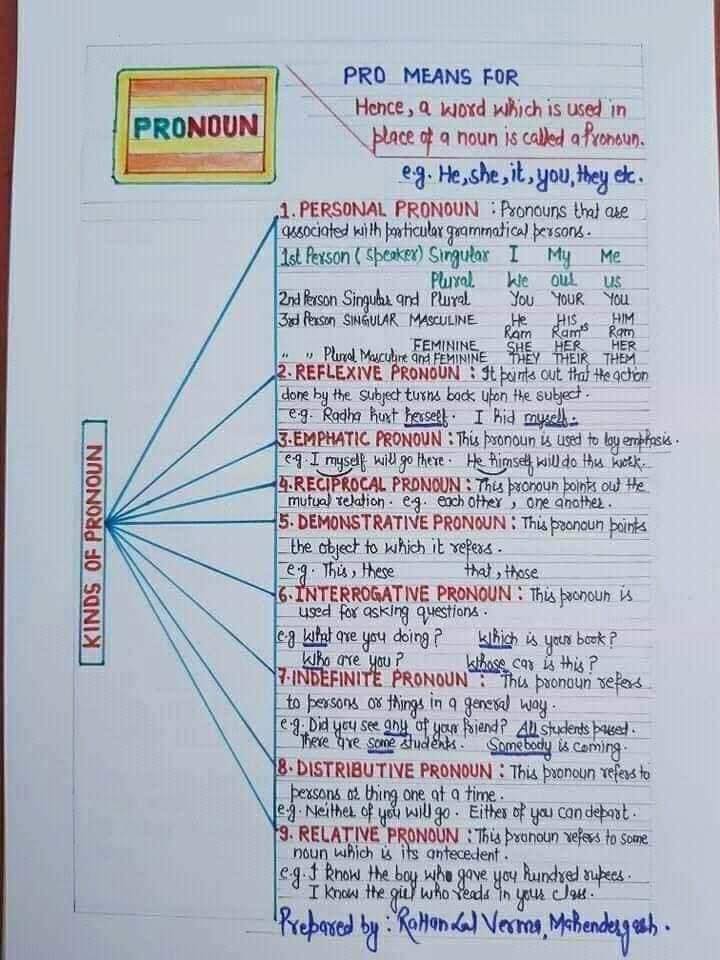 PRONOUN
PRO MEANS FOR
Hence, a word which is used in
place of a noun is called a Pronoun.
e.g. He, she, it, you, they etc.
KINDS OF PRONOUN
1. PERSONAL PRONOUN : Pronouns that are
associated with particular grammatical persons.
1st Person (Speaker) Singular I My Me
Plural We our us
2nd Person Singular and Plural YOU YOUR YOU
3rd Person SINGULAR MASCULINE He HIS HIM
Ram Ram's Ram
FEMININE SHE HER HER
" " Plural Masculine and FEMININE THEY THEIR THEM
2. REFLEXIVE PRONOUN : It points out that the action
done by the subject turns back upon the subject.
e.g. Radha hurt herself. I hid myself.
3. EMPHATIC PRONOUN : This pronoun is used to lay emphasis.
e.g. I myself will go there. He himself will do this work.
4. RECIPROCAL PRONOUN : This pronoun points out the
mutual relation. e.g. each other, one another.
5. DEMONSTRATIVE PRONOUN : This pronoun points
the object to which it refers.
e.g. This, these that, those
6. INTERROGATIVE PRONOUN : This pronoun is
used for asking questions.
e.g What are you doing? Which is your book?
Who are you? Whose car is this?
7. INDEFINITE PRONOUN : This pronoun refers
to persons or things in a general way.
e.g. Did you see any of your friend? All students passed.
There are some students. Somebody is coming.
8. DISTRIBUTIVE PRONOUN : This pronoun refers to
persons or thing one at a time.
e.g. Neither of you will go. Either of you can depart.
9. RELATIVE PRONOUN : This pronoun refers to some
noun which is its antecedent.
e.g. I know the boy who gave you hundred rupees.
I know the girl who reads in your class.
Prepared by : Rattan Lal Verma, Mahendergarh.